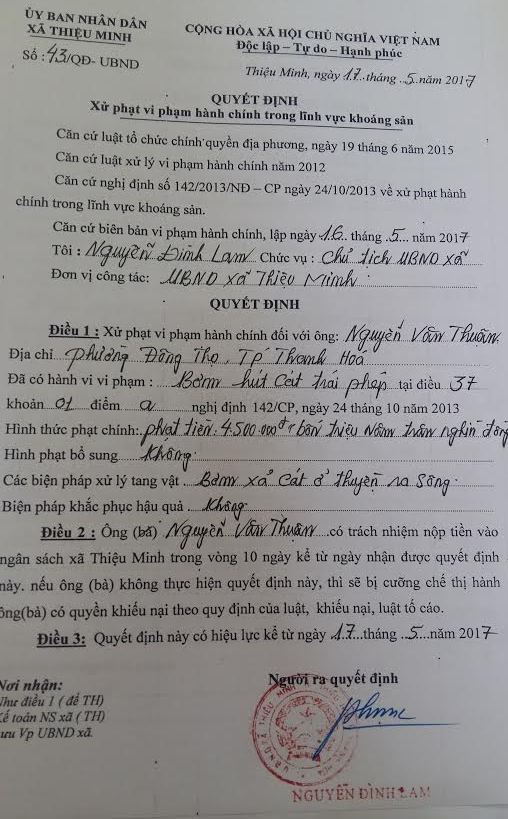 ỦY BAN NHÂN DÂN
XÃ THIỆU MINH
Số : 43/QĐ- UBND
CỘNG HÒA XÃ HỘI CHỦ NGHĨA VIỆT NAM
Độc lập – Tự do – Hạnh phúc
Thiệu Minh, ngày 17 tháng 5 năm 2017
QUYẾT ĐỊNH
Xử phạt vi phạm hành chính trong lĩnh vực khoáng sản
Căn cứ luật tổ chức chính quyền địa phương, ngày 19 tháng 6 năm 2015
Căn cứ luật xử lý vi phạm hành chính năm 2012
Căn cứ nghị định số 142/2013/NĐ – CP ngày 24/10/2013 về xử phạt hành
chính trong lĩnh vực khoáng sản.
Căn cứ biên bản vi phạm hành chính, lập ngày 16 tháng 5 năm 2017
Tôi : Nguyễn Đình Lam Chức vụ : Chủ tịch UBND xã
Đơn vị công tác: UBND xã Thiệu Minh
QUYẾT ĐỊNH
Điều 1 : Xử phạt vi phạm hành chính đối với ông: Nguyễn Văn Thuân
Địa chỉ Phường Đông Thọ, TP Thanh Hoá
Đã có hành vi vi phạm : Bơm hút cát trái phép tại điều 37
khoản 01 điểm a nghị định 142/CP, ngày 24 tháng 10 năm 2013
Hình thức phạt chính: phạt tiền 4.500.000đ bốn triệu năm trăm nghìn đồng
Hình phạt bổ sung Không
Các biện pháp xử lý tang vật Bơm xả cát ở thuyền ra sông
Biện pháp khắc phục hậu quả Không
Điều 2 : Ông (bà) Nguyễn Văn Thuân có trách nhiệm nộp tiền vào
ngân sách xã Thiệu Minh trong vòng 10 ngày kể từ ngày nhận được quyết định
này. nếu ông (bà) không thực hiện quyết định này, thì sẽ bị cưỡng chế thị hành
ông(bà) có quyền khiếu nại theo quy định của luật, khiếu nại, luật tố cáo.
Điều 3: Quyết định này có hiệu lực kể từ ngày 17 tháng 5 năm 2017
Nơi nhận:
Như điều 1 ( để TH)
Kế toán NS xã ( TH)
Lưu Vp UBND xã.
Người ra quyết định
NGUYỄN ĐÌNH LAM